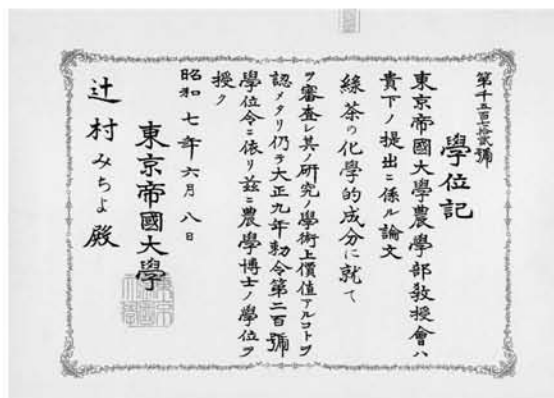 第千五百七拾貳號
學位記
東京帝國大學農學部敎授會ハ
貴下ノ提出ニ係ル論文
綠茶の化學的成分に就て
ヲ審査シ其ノ硏究ノ學術上價値アルコトヲ
認メタリ仍テ大正九年勅令第二百號
學位令ニ依リ玆ニ農學博士ノ學位ヲ
授ク
昭和七年六月八日
東京帝國大學
辻村みちよ殿